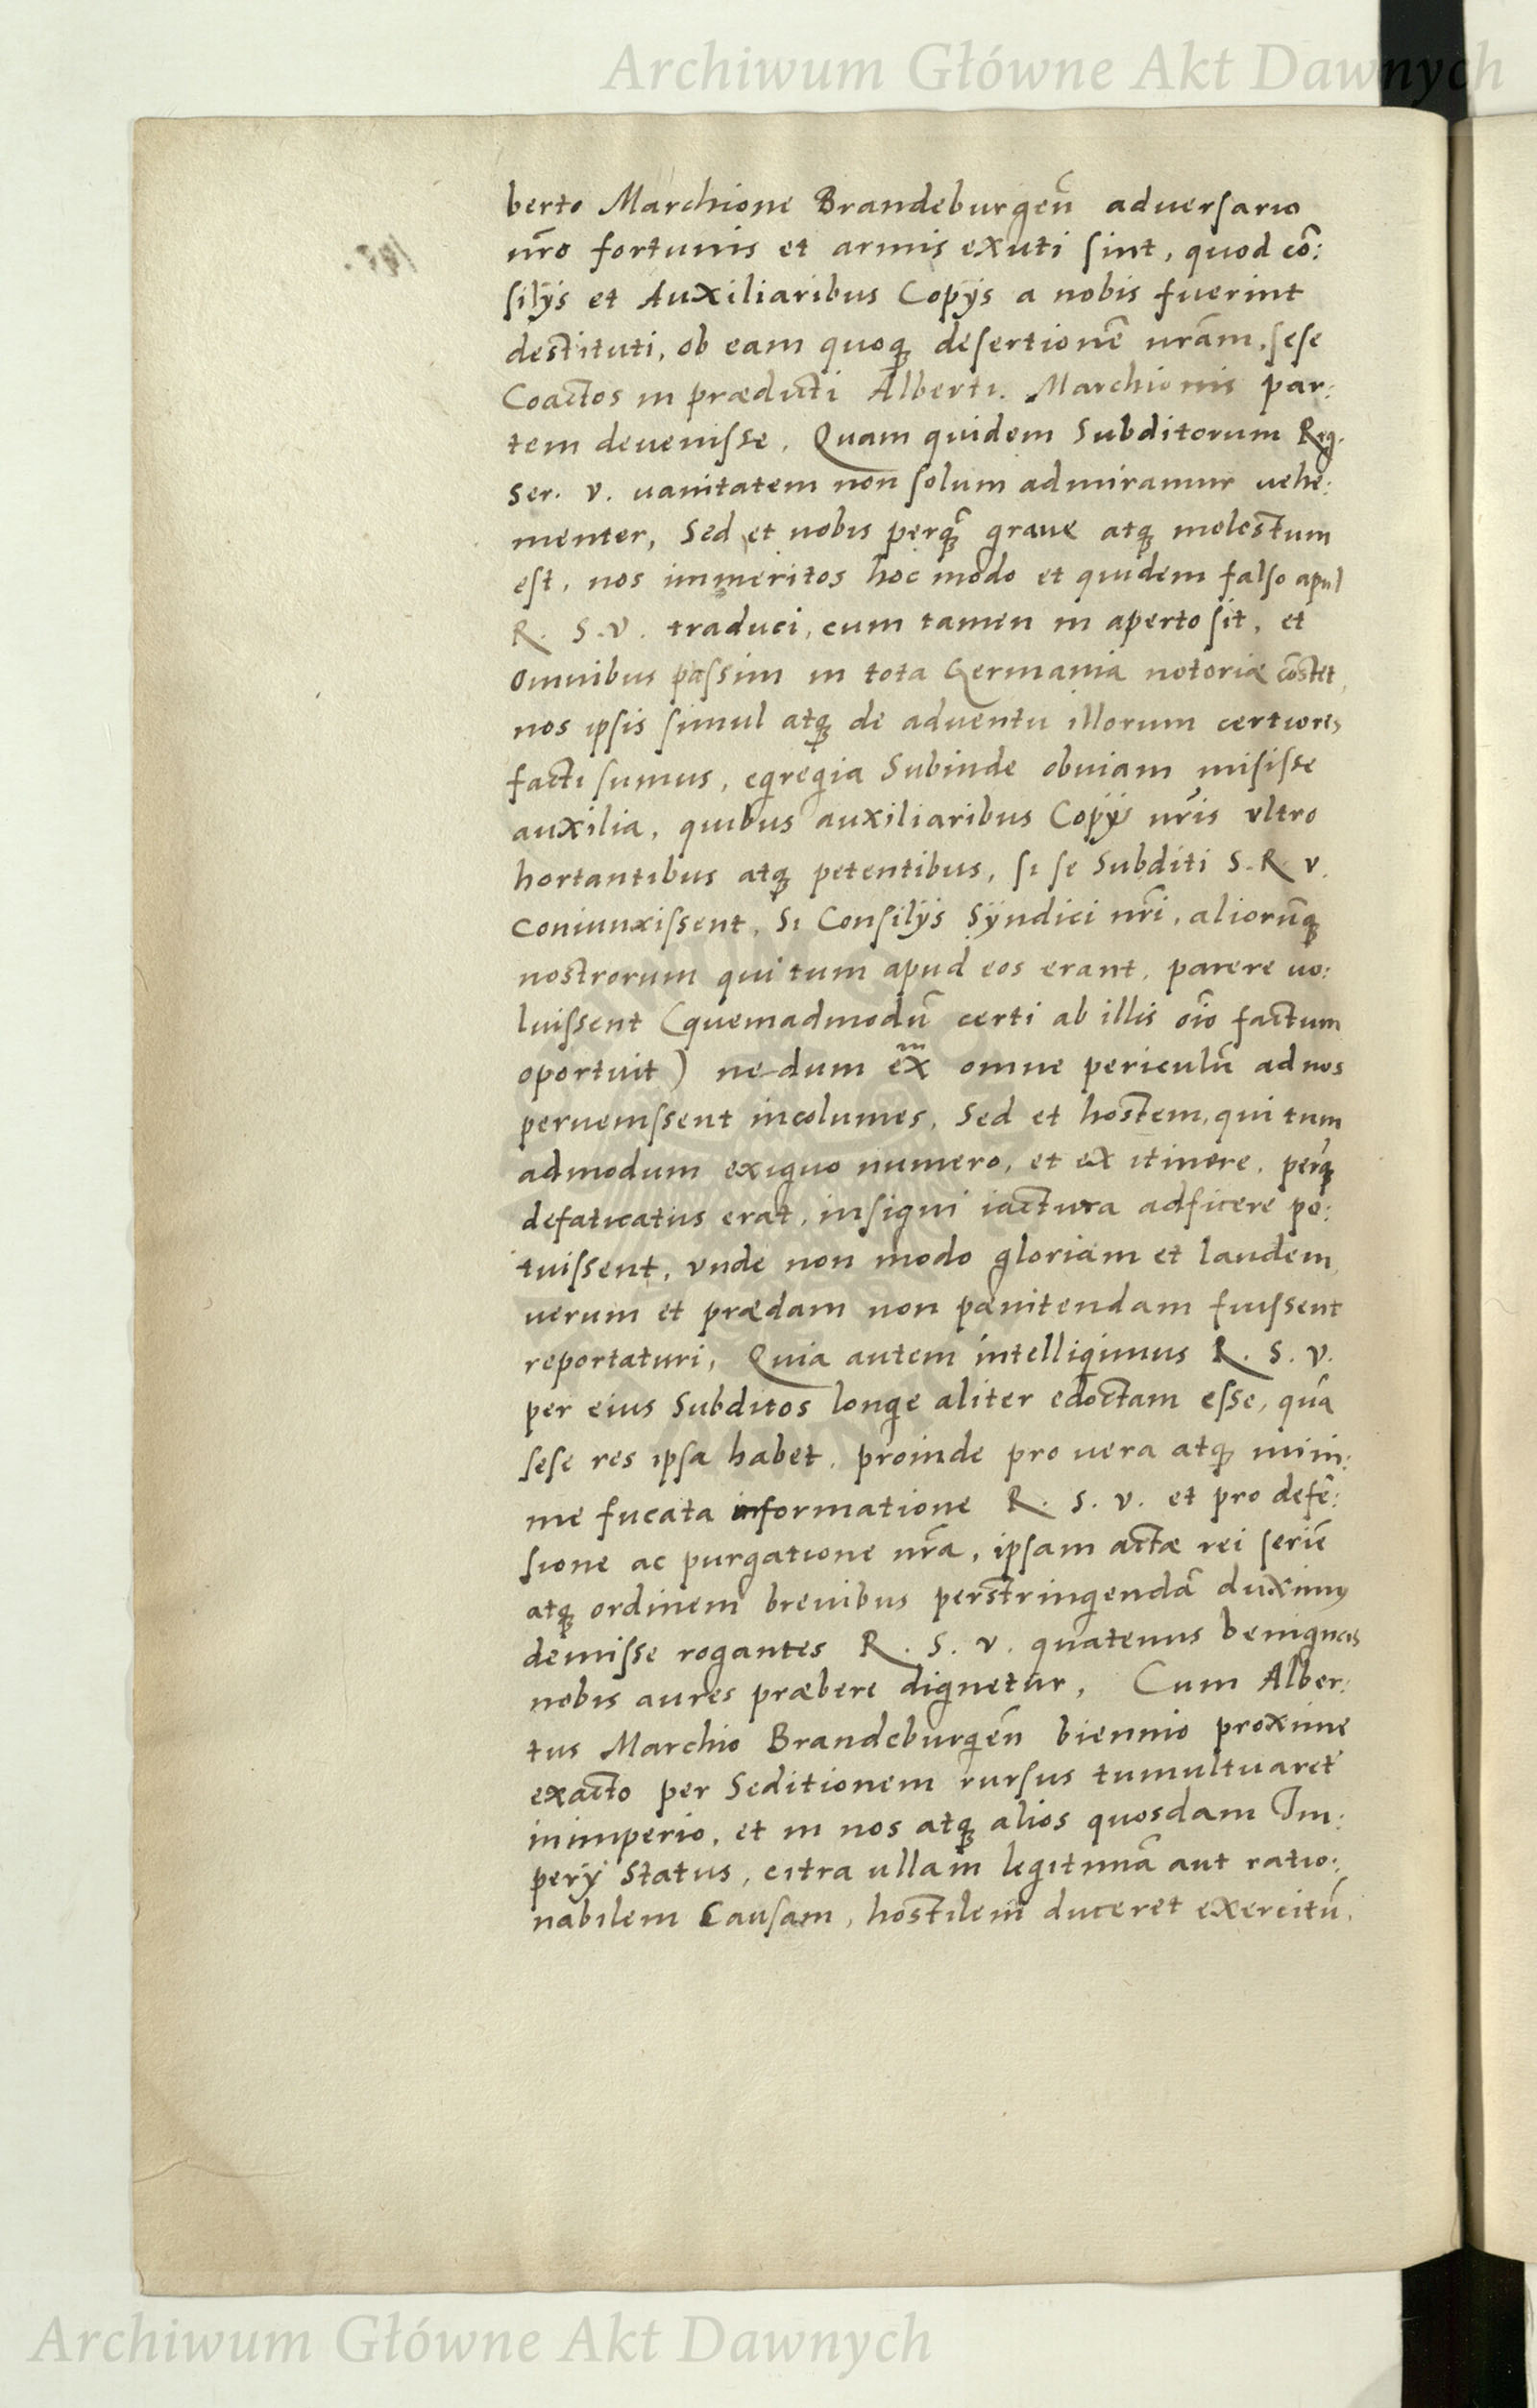 Archiwum Główne Akt Dawnych
berto Marchione Brandeburgen̄ aduersario
nr̄o fortunis et armis exuti sint, quod cō:
silÿs et Auxiliaribus Copÿs a nobis fuerint
destituti, ob eam quoqꝫ desertionē nrām, sese
Coactos in prædicti Alberti Marchionis par:
tem deuenisse. Quam quidem Subditorum Reg.
Ser. V. uanitatem non solum admiramur uehe:
menter, Sed et nobis perqꝫ̄ graue atqꝫ molestum
est, nos immeritos hoc modo et quidem falso apud
R. S. V. traduci, cum tamen in aperto sit, et
omnibus passim in tota Germania notoriæ cōstet,
nos ipsis simul atqꝫ de aduentu illorum certiores
facti sumus, egregia Subinde obuiam misisse
auxilia, quibus auxiliaribus Copÿs nrīs vltro
hortantibus atqꝫ petentibus, si se Subditi S. R. V.
coniunxissent, Si Consilÿs Sÿndici nrī, aliorūqꝫ
nostrorum qui tum apud eos erant, parere uo:
luissent (quemadmodū certi ab illis oīo factum
oportuit) ne dum ex omne periculū ad nos
peruenissent incolumes, Sed et hostem, qui tum
admodum exiguo numero, et ex itinere, perqꝫ̄
defaticatus erat, insigni iactura adficere po:
tuissent, vnde non modo gloriam et laudem
uerum et prædam non pænitendam fuissent
reportaturi, Quia autem intelligimus R. S. V.
per eius Subditos longe aliter edoctam esse, quā
sese res ipsa habet, proinde pro uera atqꝫ mini:
me fucata informatione R. S. V. et pro defē:
sione ac purgatione nrā, ipsam actæ rei seriē
atqꝫ ordinem breuibus perstringendā duximus
demisse rogantes R. S. V. quatenus benignas
nobis aures præbere dignetur, Cum Alber:
tus Marchio Brandeburgen̄ biennio proxime
exacto per Seditionem rursus tumultuaret
in imperio, et in nos atqꝫ alios quosdam Im:
perÿ Status, citra ullam legitimā aut ratio:
nabilem Causam, hostilem duceret exercitū.
Archiwum Główne Akt Dawnych